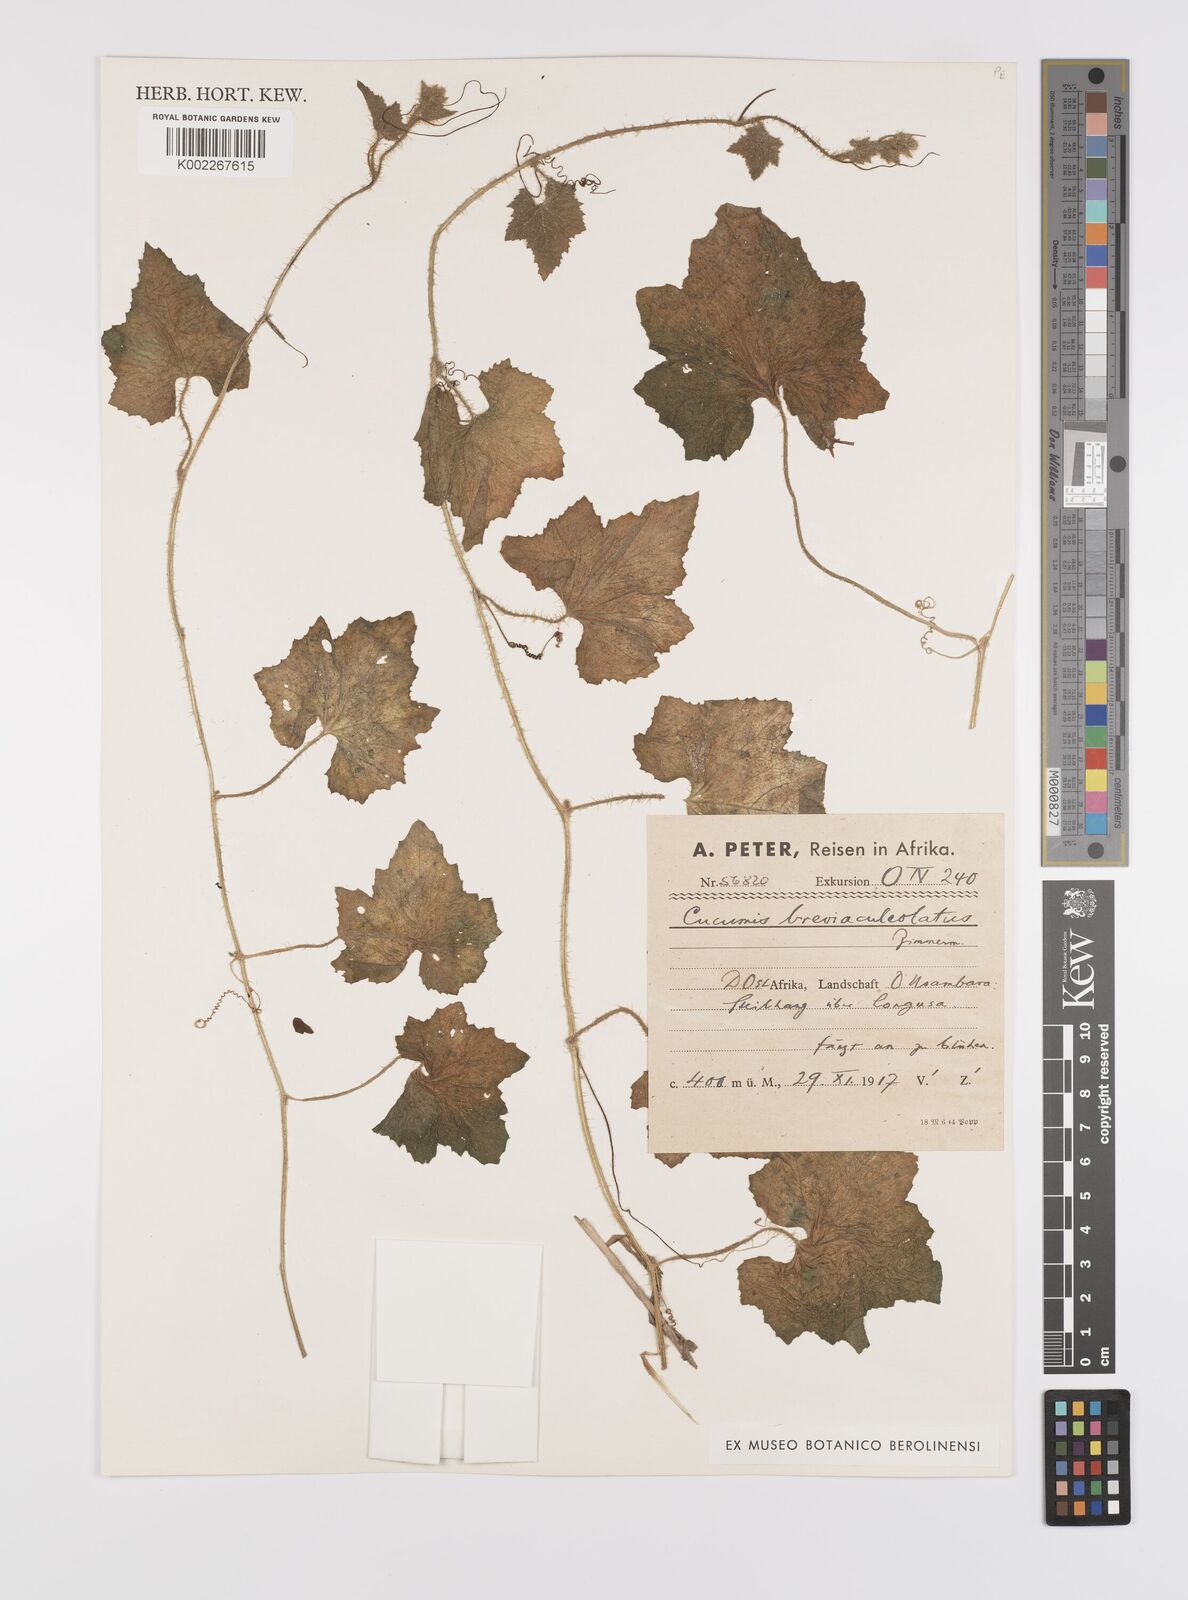 HERB. HORT. KEW.
ROYAL BOTANIC GARDENS KEW
K002267615
A. PETER, Reisen in Afrika.
Nr. 56820 Exkursion O IV 240
Cucumis breviaculeolatus
Zimmerm.
D Ost Afrika, Landschaft O Usambara:
Steilhang über Longusa
fängt an zu blühen.
c. 400 m ü. M., 29. XI. 1917 V.! Z.!
EX MUSEO BOTANICO BEROLINENSI
Density
Don Williams
M000827
centimeters
Royal Botanic Gardens
Kew
0 1 2 3 4 5 6 7 8 9 10
cm
copyright reserved